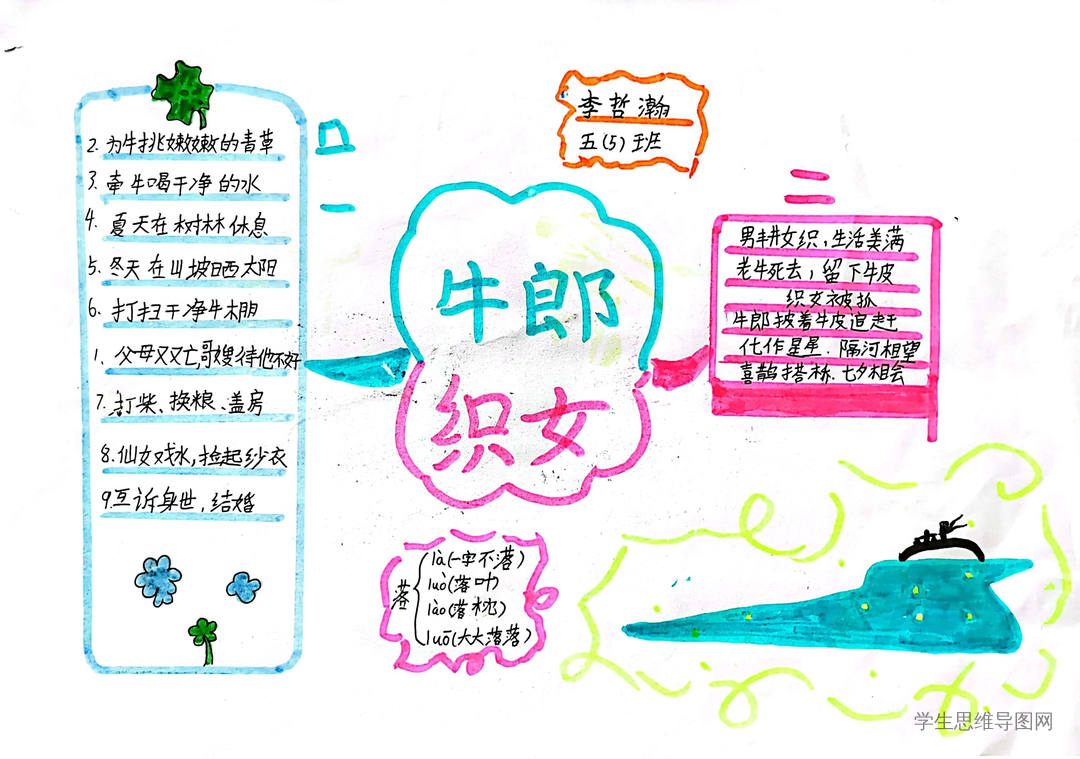 李哲瀚
五(5)班
牛郎
织女
一
2. 为牛挑嫩嫩的青草
3. 牵牛喝干净的水
4. 夏天在树林休息
5. 冬天在山坡晒太阳
6. 打扫干净牛棚
1. 父母双亡,哥嫂待他不好
7. 打柴、换粮、盖房
8. 仙女戏水,捡起纱衣
9. 互诉身世,结婚
二
男耕女织,生活美满
老牛死去,留下牛皮
织女被抓
牛郎披着牛皮追赶
化作星星.隔河相望
喜鹊搭桥.七夕相会
落
là(一字不落)
luò(落叶)
lào(落枕)
luō(大大落落)
学生思维导图网